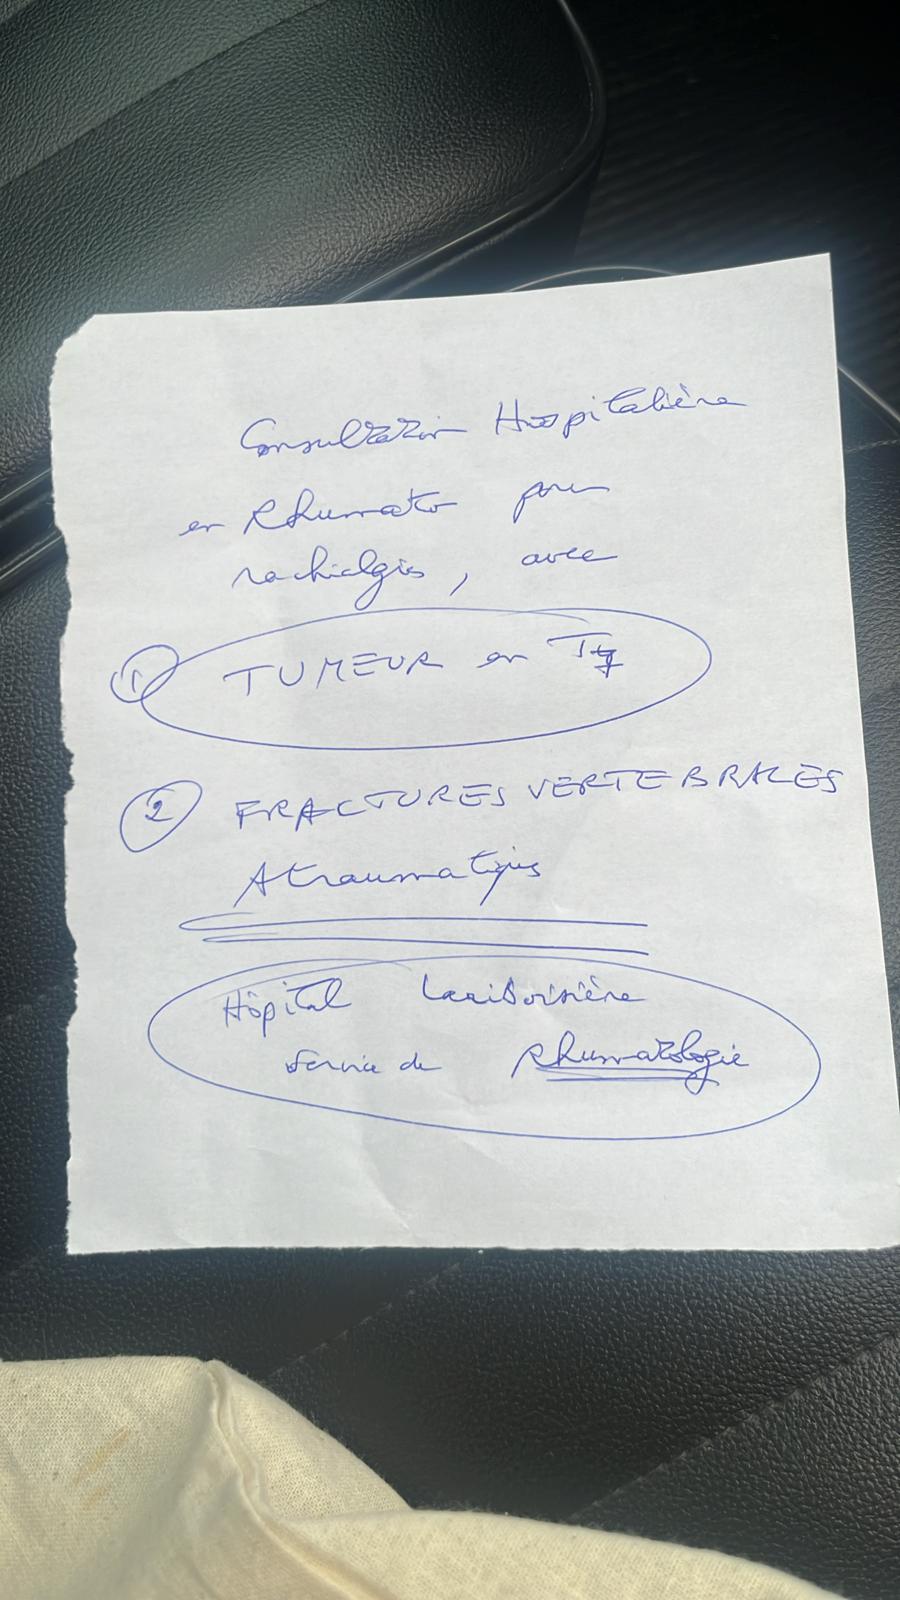 Consultation Hospitalière
en Rhumato pour
rachialgies, avec
① TUMEUR en T7
② FRACTURES VERTEBRALES
Atraumatiques
Hôpital Lariboisière
service de Rhumatologie